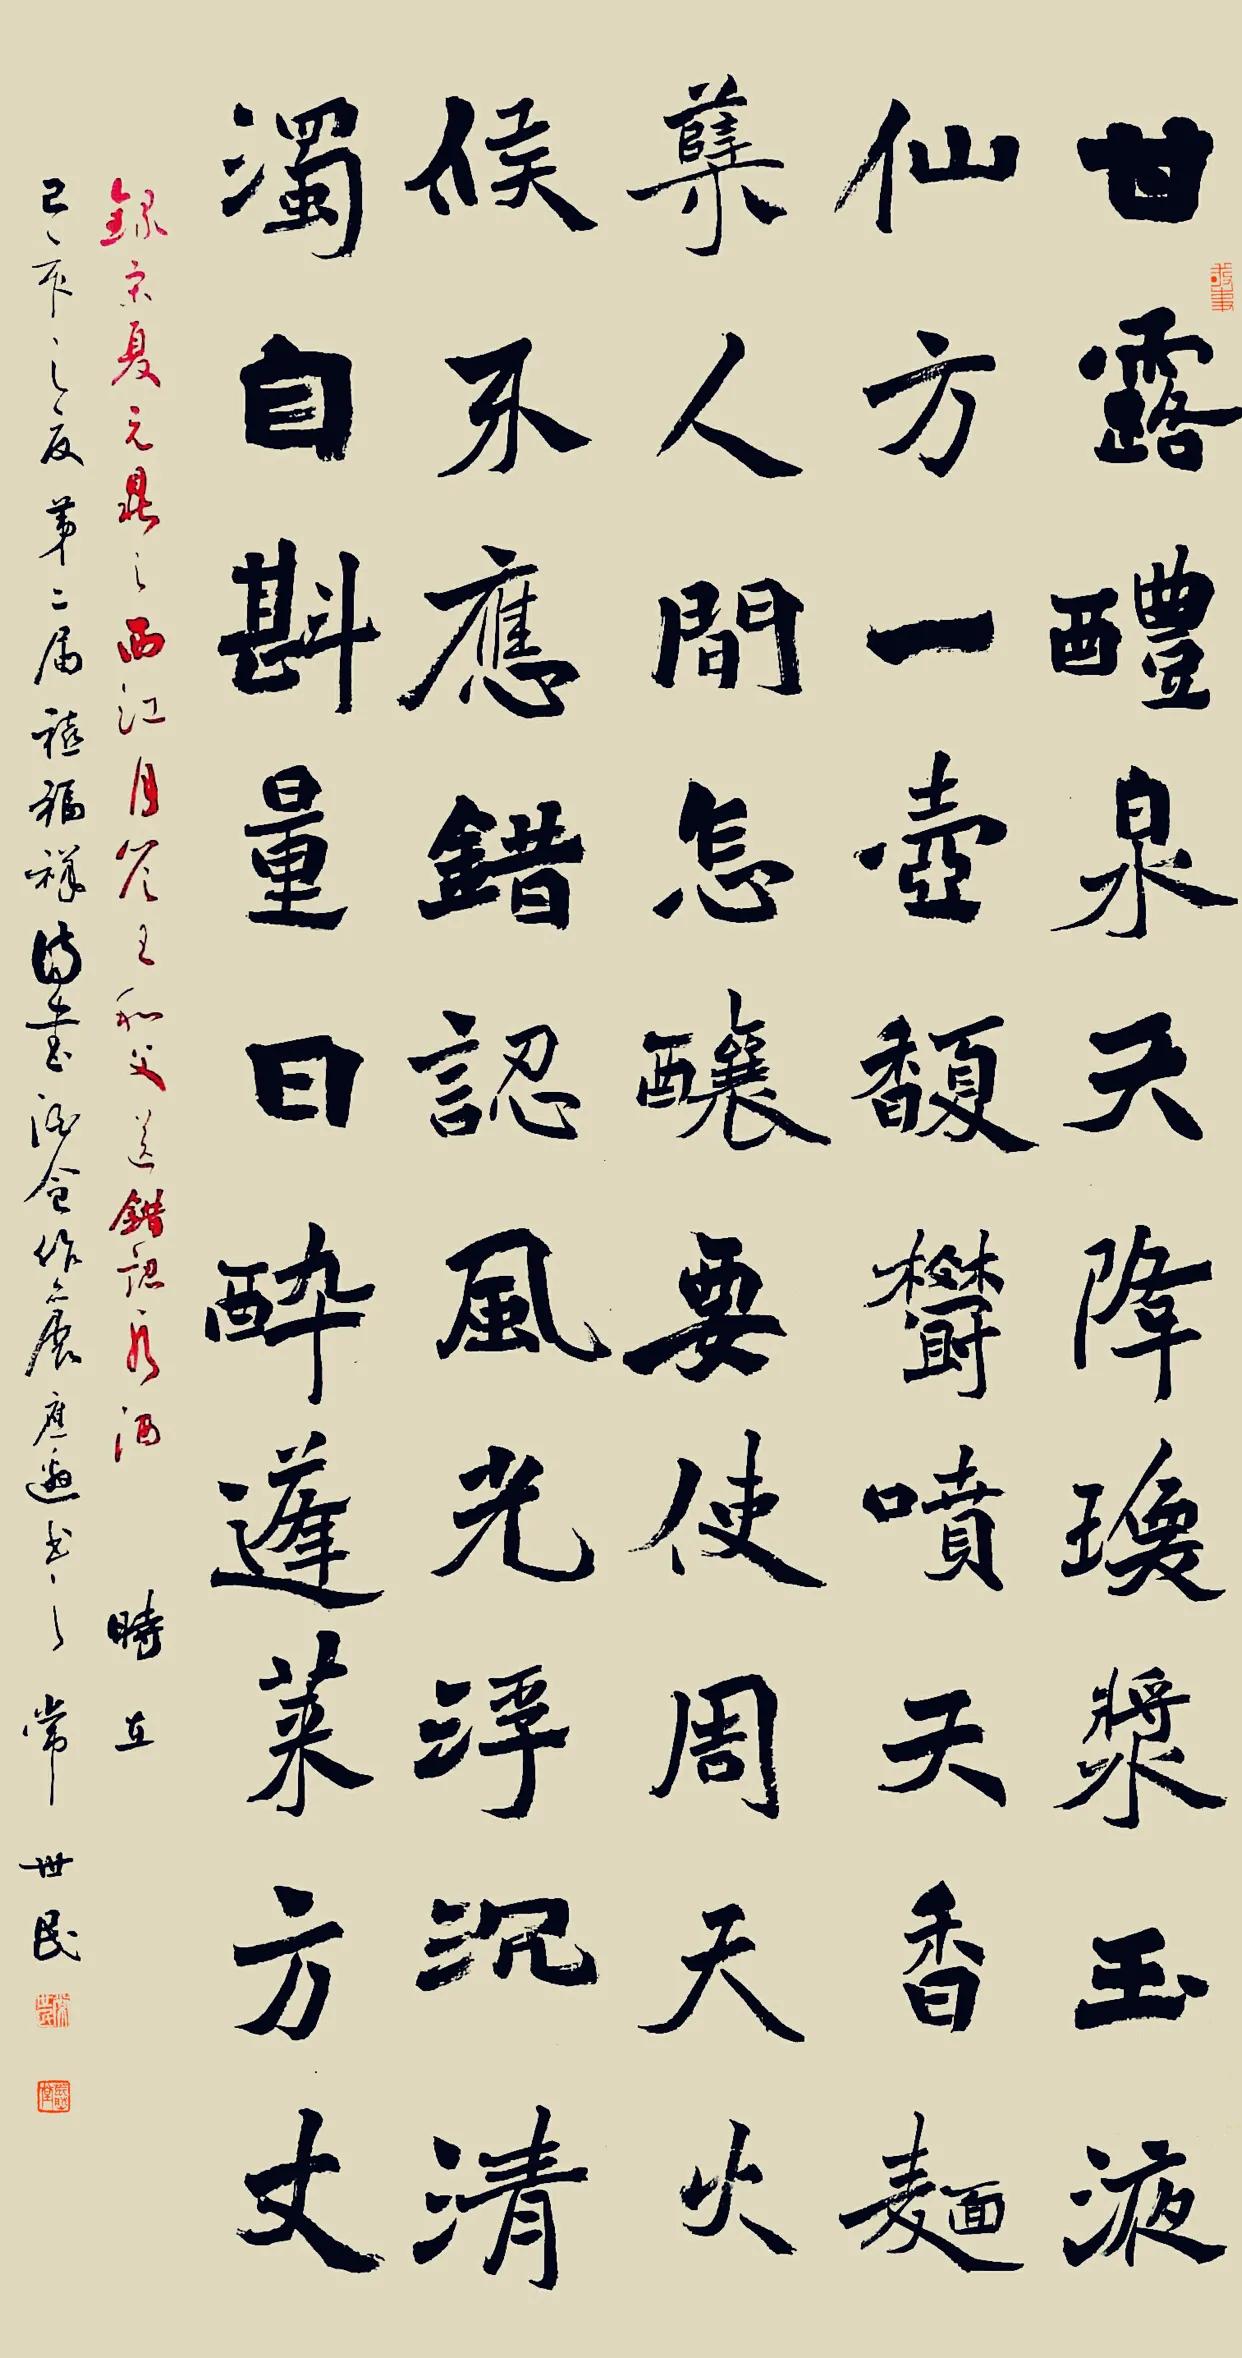 甘露醴泉天降瓊漿玉液
仙方一壺馥鬱噴天香麵
蘖人間怎釀要使周天火
候不應錯認風光浮沉清
濁自斟量日醉蓬萊方丈
錄宋夏元鼎之西江月答王和父送錯認水酒 時在
己亥之夏第二屆禧福祥詩書酒合作展應邀書之 常世民